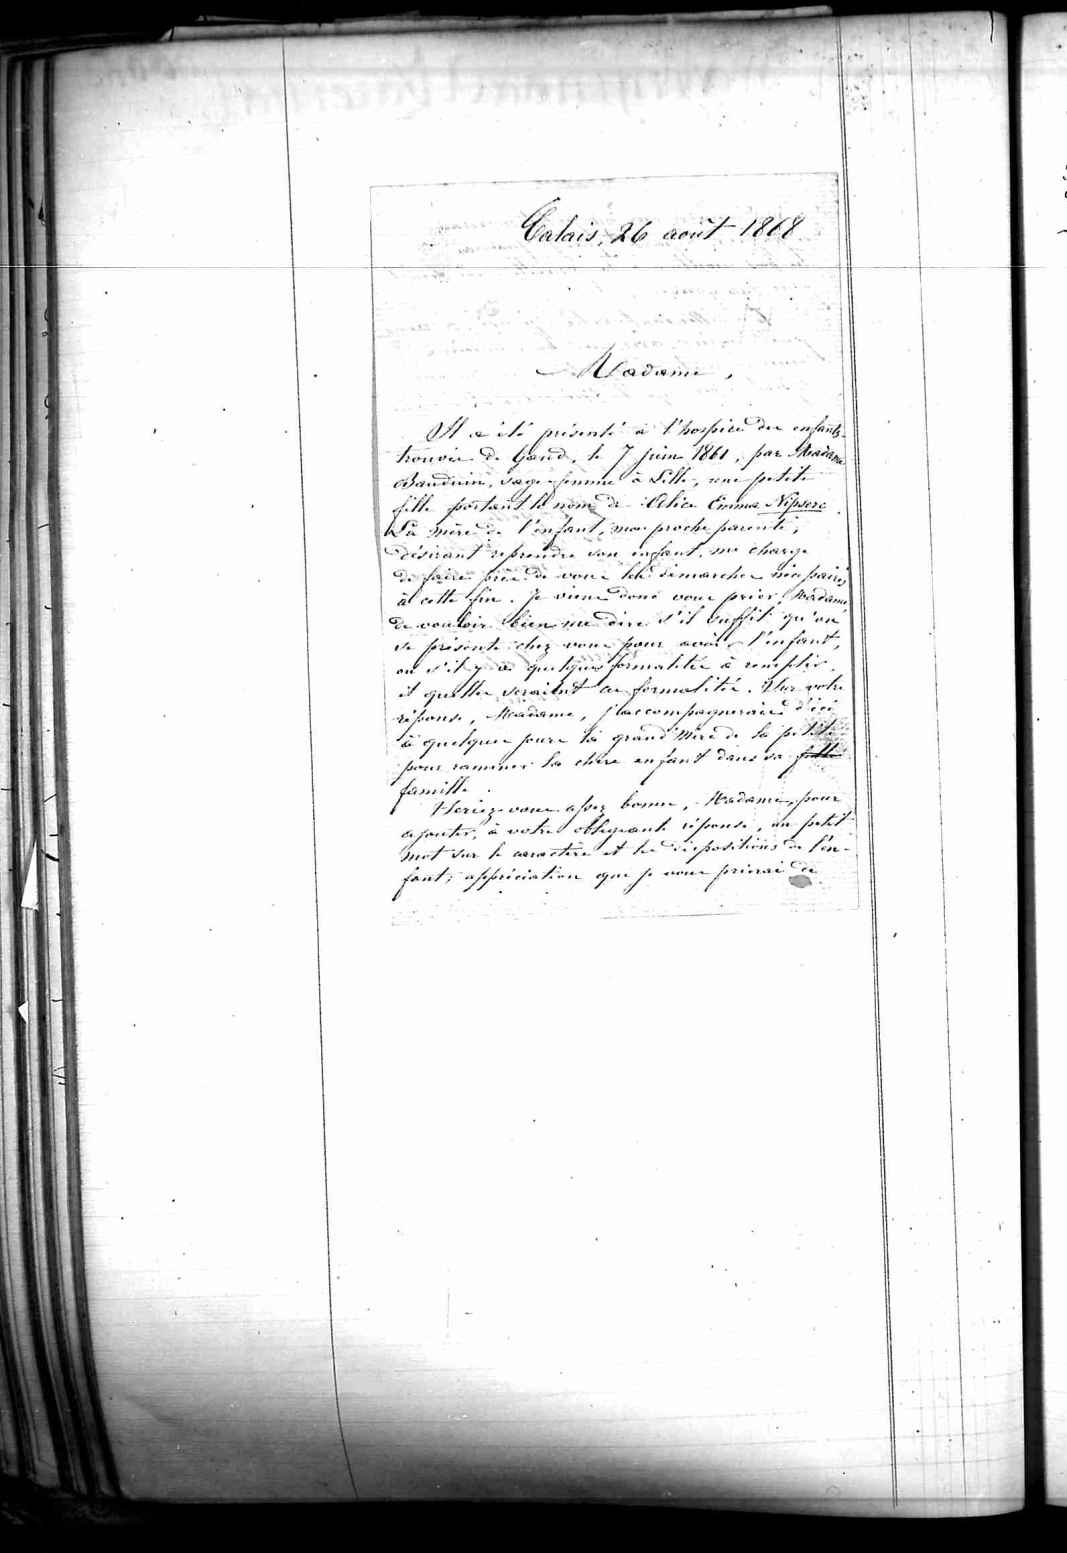 Calais, 26 août 1868
Madame,
Il a été présenté à l'hospice des enfants
trouvés de Gand, le 7 juin 1861, par Madame
Bauduin, sage-femme à Lille, une petite
fille portant le nom de Alice Emma Nipsere.
La mère de l'enfant, ma proche parente,
désirant reprendre son enfant, me charge
de faire près de vous les démarches nécessaires
à cette fin. Je viens donc vous prier, Madame,
de vouloir bien me dire s'il suffit qu'on
se présente chez vous pour avoir l'enfant,
ou s'il y a quelques formalités à remplir,
et quelles seraient ces formalités. Sur votre
réponse, Madame, j'accompagnerais d'ici
à quelques jours la grand'mère de la petite
pour ramener la chère enfant dans sa
famille.
Seriez-vous assez bonne, Madame, pour
ajouter, à votre obligeante réponse, un petit
mot sur le caractère et les dispositions de l'en-
fant, appréciation que je vous prierai de